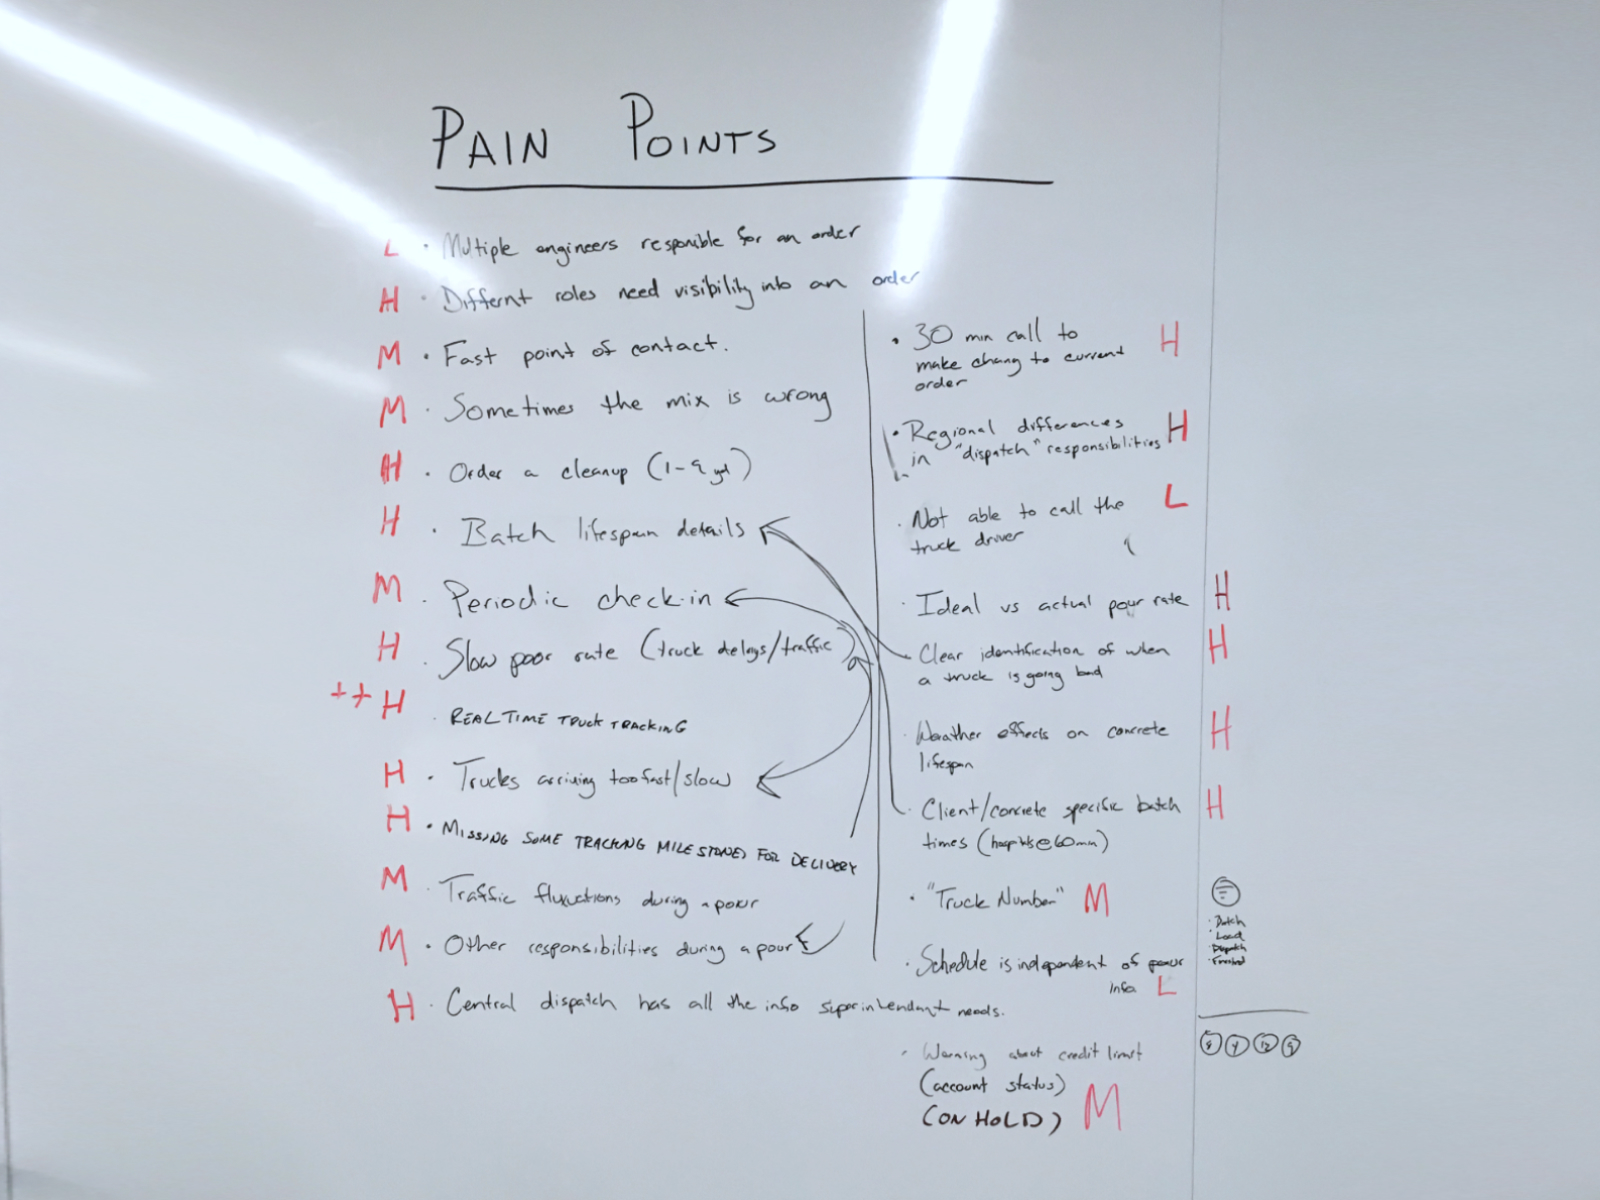 PAIN POINTS
L · Multiple engineers responible for an order
H · Differnt roles need visibility into an order
M · Fast point of contact.
M · Sometimes the mix is wrong
H · Order a cleanup (1-9 yd)
H · Batch lifespan details
M · Periodic check-in
H · Slow poor rate (truck delays/traffic)
++ H · REALTIME TRUCK TRACKING
H · Trucks arriving too fast/slow
H · MISSING SOME TRACKING MILESTONES FOR DELIVERY
M · Traffic fluxuctions during a pour
M · Other responsibilities during a pour
H · Central dispatch has all the info superintendant needs.
· 30 min call to H
make chang to current
order
· Regional differences H
in "dispatch" responsibilities
· Not able to call the L
truck driver
· Ideal vs actual pour rate H
· Clear identification of when H
a truck is going bad
· Weather effects on concrete H
lifespan
· Client/concrete specific batch H
times (hospitals@60min)
· "Truck Number" M
· Schedule is independent of pour
info L
· Warning about credit limit
(account status)
(ON HOLD) M
· Batch
· Load
· Dispatch